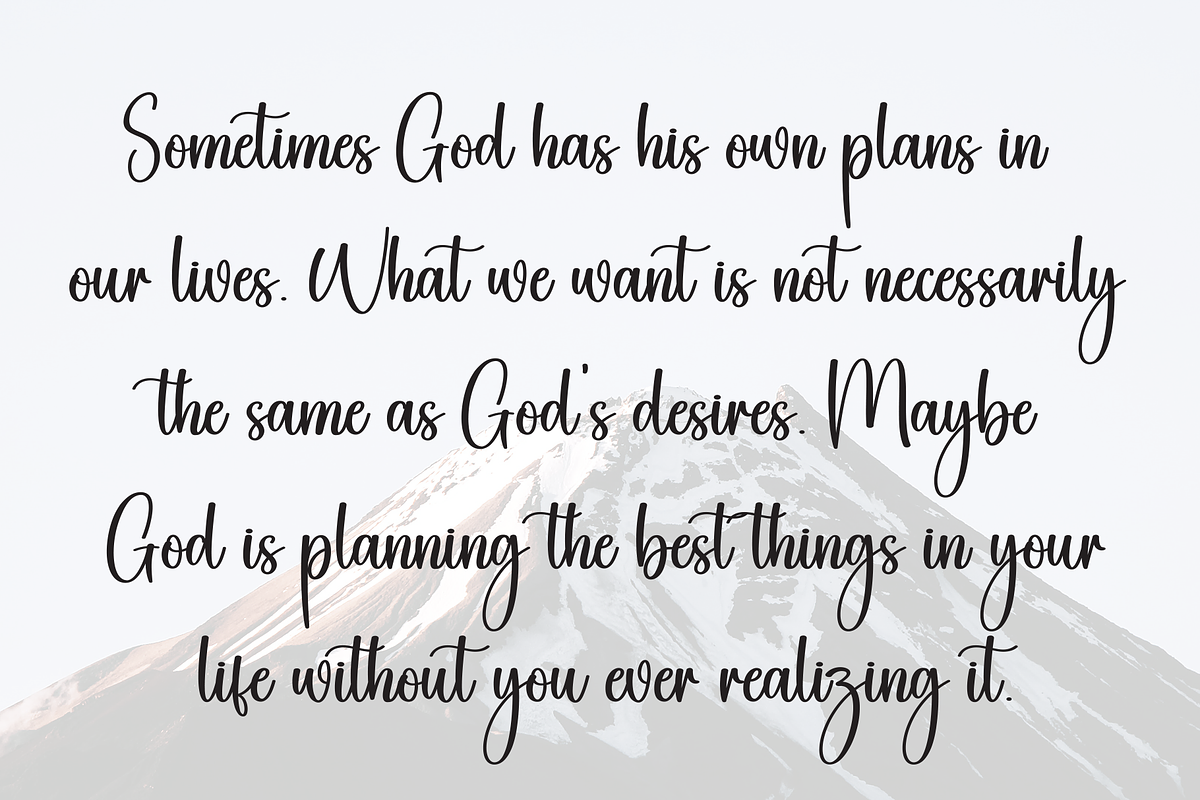 Sometimes God has his own plans in
our lives. What we want is not necessarily
the same as God's desires. Maybe
God is planning the best things in your
life without you ever realizing it.